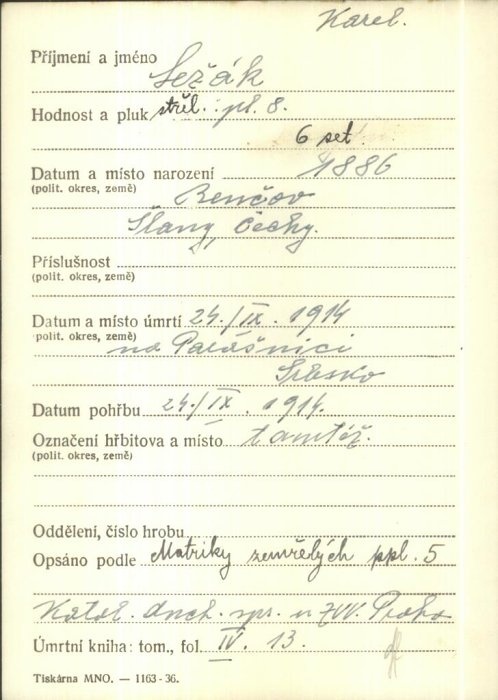 Karel.
Příjmení a jméno Ležák
Hodnost a pluk střel. pl. 8.
6 set.
Datum a místo narození 1886
(polit. okres, země)
Renčov
Slany, Čechy.
Příslušnost
(polit. okres, země)
Datum a místo úmrtí 24./IX. 1914
polit. okres, země)
na Parašnici
Srbsko
Datum pohřbu 24./IX. 1914.
Označení hřbitova a místo tamtéž.
(polit. okres, země)
Oddělení, číslo hrobu
Opsáno podle Matriky zemřelých ppl. 5
Katol. duch. spr. u ZVV. Praha
Úmrtní kniha: tom., fol. IV. 13.
Tiskárna MNO. — 1163-36.